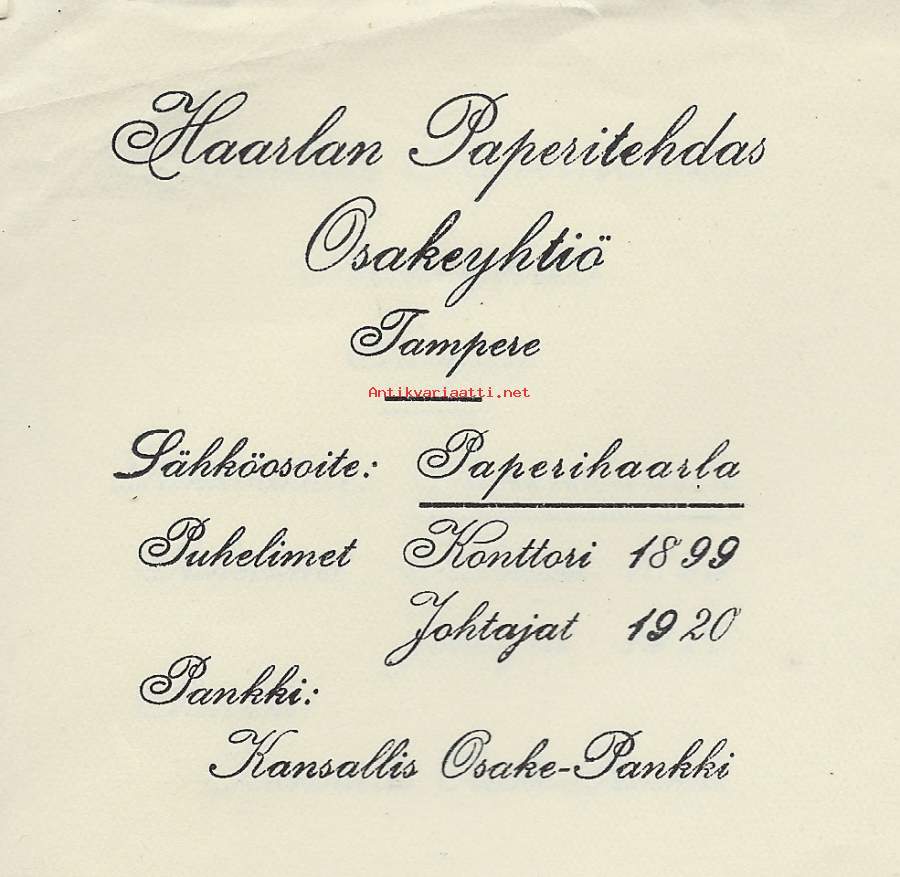 Haarlan Paperitehdas
Osakeyhtiö
Tampere
Antikvariaatti.net
Sähköosoite: Paperihaarla
Puhelimet Konttori 1899
Johtajat 1920
Pankki:
Kansallis Osake-Pankki